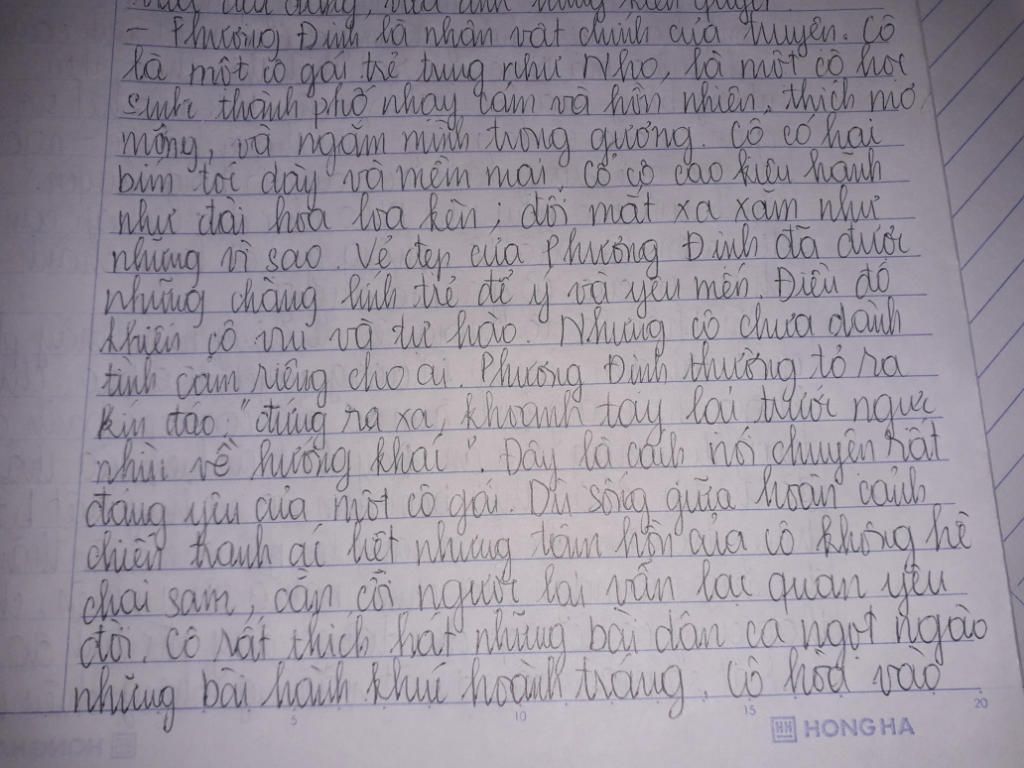 vừa dịu dàng, vừa anh hùng kiên quyết.
- Phương Định là nhân vật chính của truyện. Cô
là một cô gái trẻ trung như Nho, là một cô học
sinh thành phố nhạy cảm và hồn nhiên, thích mơ
mộng, và ngắm mình trong gương. Cô có hai
bím tóc dày và mềm mại cổ cô cao kiêu hãnh
như đài hoa loa kèn; đôi mắt xa xăm như
những vì sao. Vẻ đẹp của Phương Định đã được
những chàng lính trẻ để ý và yêu mến. Điều đó
khiến cô vui và tự hào. Nhưng cô chưa dành
tình cảm riêng cho ai. Phương Định thường tỏ ra
kín đáo "đứng ra xa, khoanh tay lại trước ngực
nhìn về hướng khác". Đây là cách nói chuyện rất
đáng yêu của một cô gái. Dù sống giữa hoàn cảnh
chiến tranh ác liệt nhưng tâm hồn của cô không hề
chai sạm, cằn cỗi ngược lại vẫn lạc quan yêu
đời. Cô rất thích hát những bài dân ca ngọt ngào
những bài hành khúc hoành tráng. Cô hòa vào
5 10 15 20
HONG HA